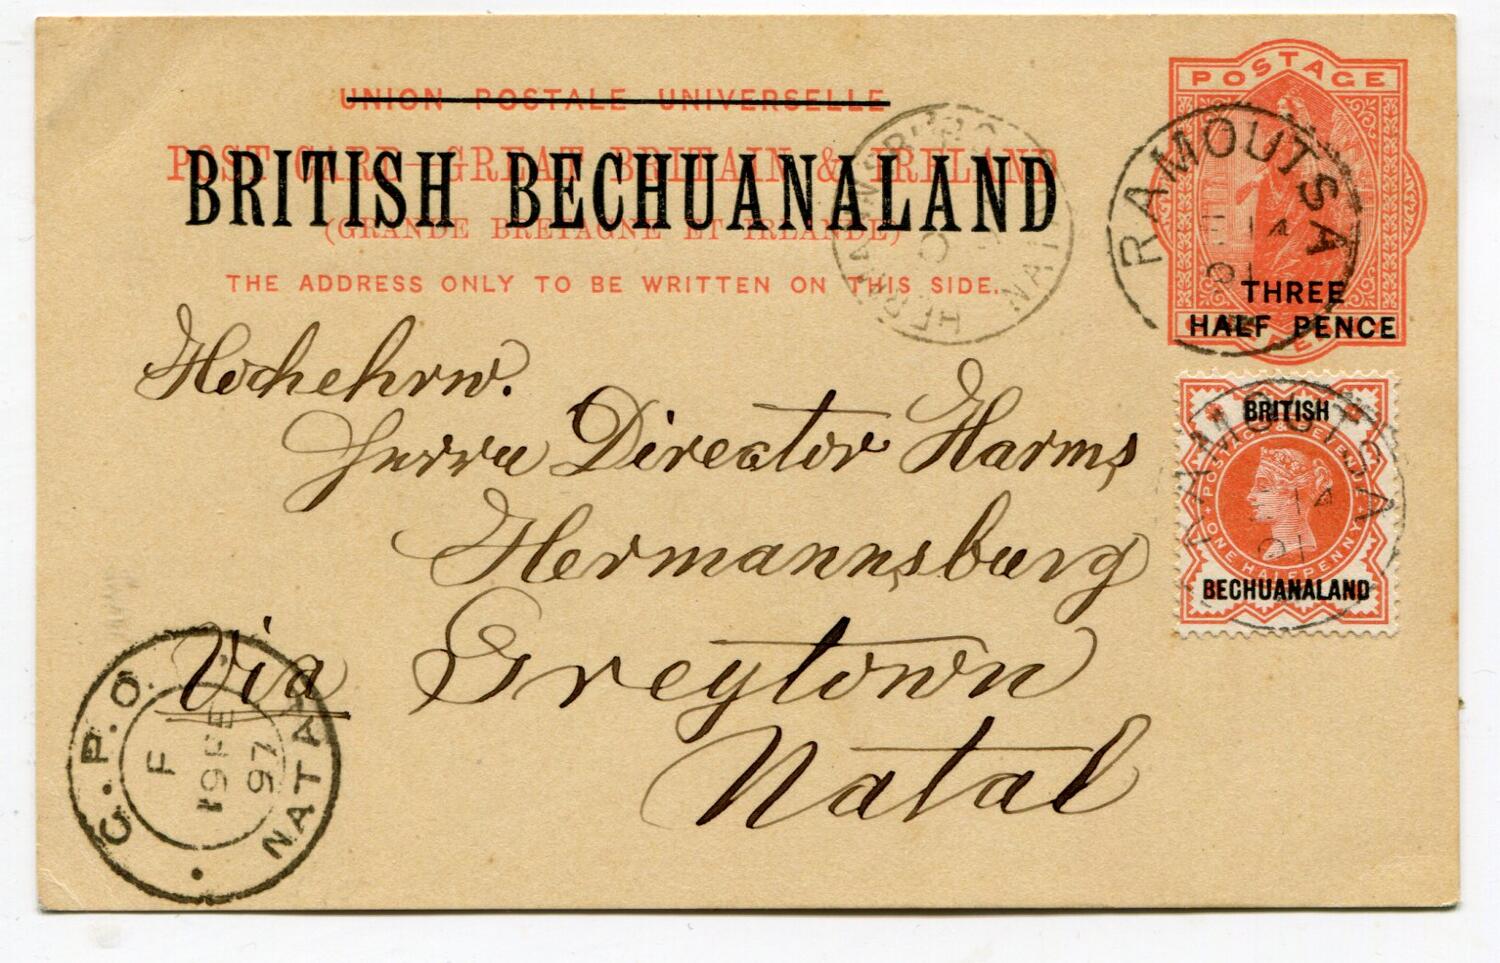 UNION POSTALE UNIVERSELLE
POST CARD—GREAT BRITAIN & IRELAND
BRITISH BECHUANALAND
(GRANDE BRETAGNE ET IRLANDE)
THE ADDRESS ONLY TO BE WRITTEN ON THIS SIDE.
POSTAGE
THREE
HALF PENCE
RAMOUTSA
HERMANNSBURG
NATAL
BRITISH
POSTAGE & REVENUE
ONE HALFPENNY
BECHUANALAND
RAMOUTSA
Hochehrw.
Herrn Director Harms,
Hermannsburg
Via Greytown
Natal
G.P.O. NATAL
F
19 FE
97